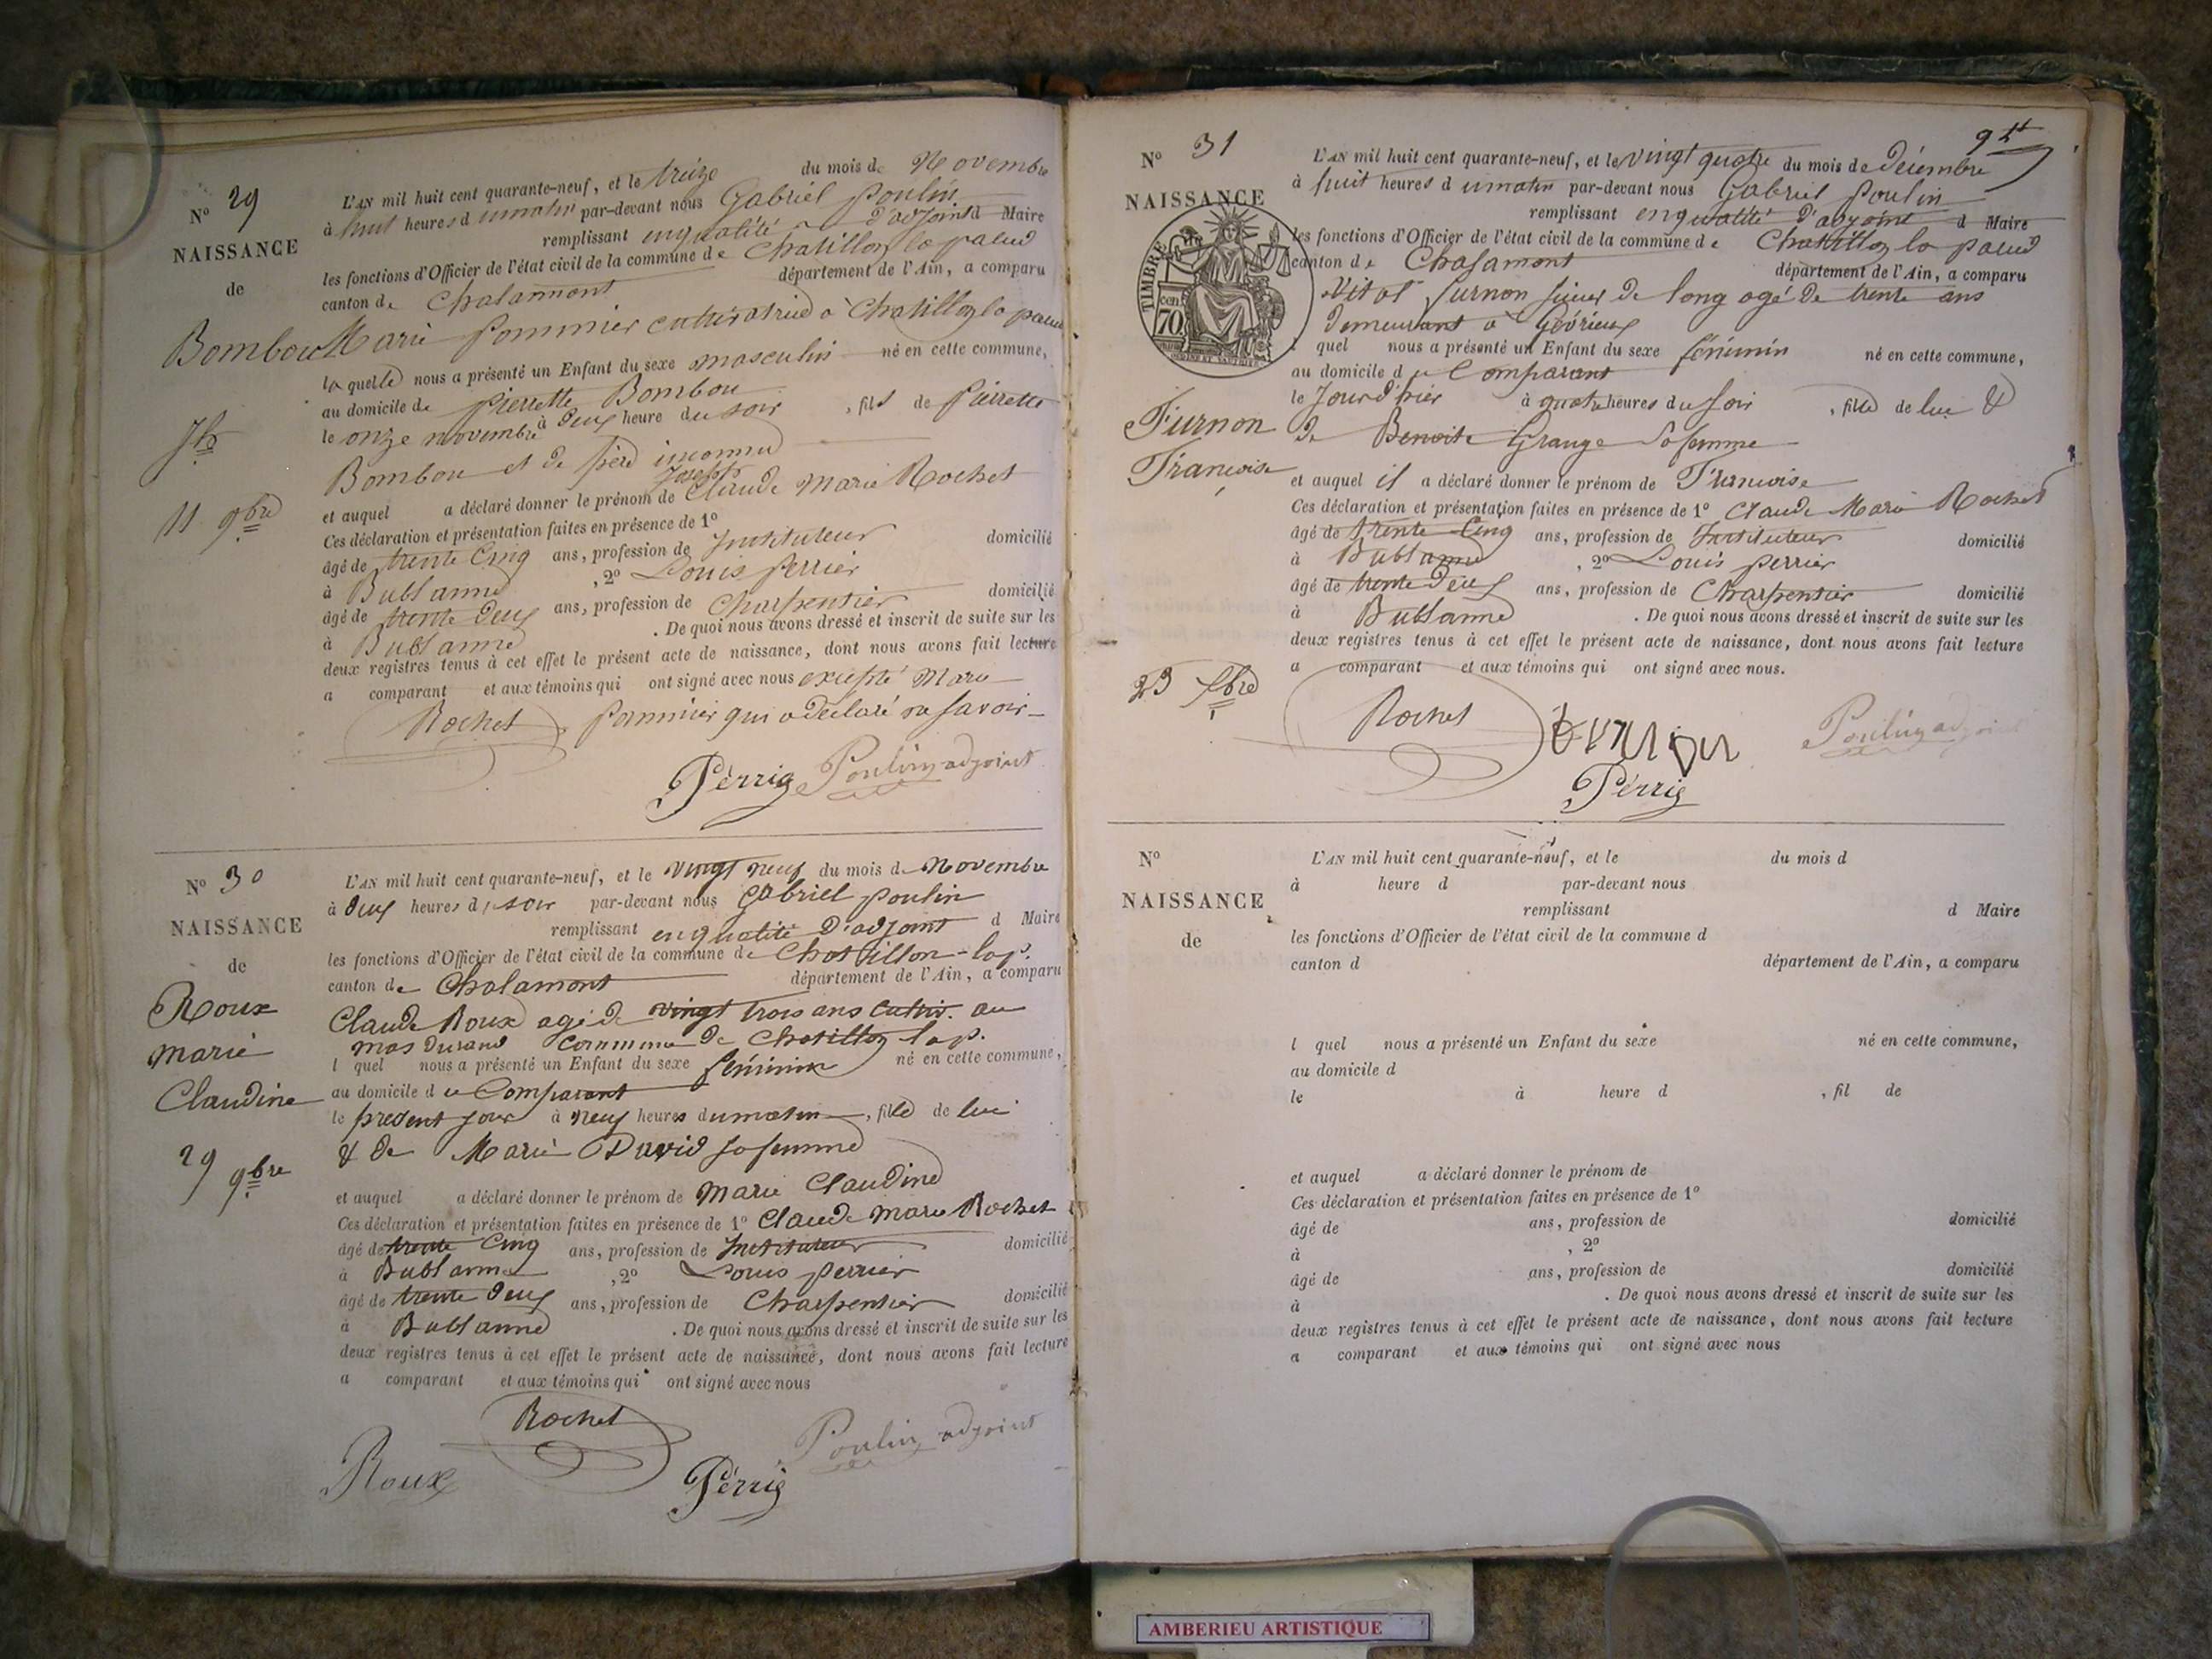 N° 29
NAISSANCE
de
Bombou
Jh
11 9bre
L'AN mil huit cent quarante-neuf, et le treize du mois de Novembre
à huit heures du matin par-devant nous Gabriel Poulin
remplissant en qualité d'adjoint d Maire
les fonctions d'Officier de l'état civil de la commune de Chatillon la palud
canton de Chalamont département de l'Ain, a comparu
Marie Pommier cultivatrice à Chatillon la palud
la quelle nous a présenté un Enfant du sexe masculin né en cette commune,
au domicile de Pierrette Bombou
le onze novembre à deux heure du soir, fils de Pierrette
Bombou et de père inconnu
et auquel a déclaré donner le prénom de Joseph
Ces déclaration et présentation faites en présence de 1° Claude Marie Rochet
âgé de trente Cinq ans, profession de Instituteur domicilié
à Bublanne, 2° Louis perrier
âgé de trente deux ans, profession de Charpentier domicilié
à Bublanne. De quoi nous avons dressé et inscrit de suite sur les
deux registres tenus à cet effet le présent acte de naissance, dont nous avons fait lecture
a comparant et aux témoins qui ont signé avec nous excepté Marie
Pommier qui a declaré ne savoir
Rochet
Perrier Poulin adjoint
N° 30
NAISSANCE
de
Roux
marie
Claudine
29 9bre
L'AN mil huit cent quarante-neuf, et le vingt neuf du mois de Novembre
à deux heures du soir par-devant nous Gabriel poulin
remplissant en qualité d'adjoint d Maire
les fonctions d'Officier de l'état civil de la commune de Chatillon-lap.
canton de Chalamont département de l'Ain, a comparu
Claude Roux agé de vingt trois ans Cultiv. au
mas Durand Commune de Chatillon lap.
l quel nous a présenté un Enfant du sexe féminin né en cette commune,
au domicile du Comparant
le présent jour à neuf heures du matin, fille de lui
& de Marie David sa femme
et auquel a déclaré donner le prénom de Marie Claudine
Ces déclaration et présentation faites en présence de 1° Claude Marie Rochet
âgé de trente Cinq ans, profession de Instituteur domicilié
à Bublanne, 2° Louis perrier
âgé de trente deux ans, profession de Charpentier domicilié
à Bublanne. De quoi nous avons dressé et inscrit de suite sur les
deux registres tenus à cet effet le présent acte de naissance, dont nous avons fait lecture
a comparant et aux témoins qui ont signé avec nous
Rochet Poulin adjoint
Roux Perrier
N° 31
NAISSANCE
TIMBRE
cen
70
Furnon
Françoise
23 Xbre
L'AN mil huit cent quarante-neuf, et le vingt quatre du mois de décembre
à huit heures du matin par-devant nous Gabriel poulin
remplissant en qualité d'adjoint d Maire
les fonctions d'Officier de l'état civil de la commune de Chatillon la palud
canton de Chalamont département de l'Ain, a comparu
Vital furnon sieur de long agé de trente ans
demeurant à Gévrieux
l quel nous a présenté un Enfant du sexe féminin né en cette commune,
au domicile du Comparant
le Jour d'hier à quatre heures du soir, fille de lui &
de Benoite Grange sa femme
et auquel il a déclaré donner le prénom de Françoise
Ces déclaration et présentation faites en présence de 1° Claude Marie Rochet
âgé de trente Cinq ans, profession de Instituteur domicilié
à Bublanne, 2° Louis perrier
âgé de trente deux ans, profession de Charpentier domicilié
à Bublanne. De quoi nous avons dressé et inscrit de suite sur les
deux registres tenus à cet effet le présent acte de naissance, dont nous avons fait lecture
a comparant et aux témoins qui ont signé avec nous.
Rochet Poulin adjoint
Perrier
N°
NAISSANCE
de
L'AN mil huit cent quarante-neuf, et le du mois d
à heure d par-devant nous
remplissant d Maire
les fonctions d'Officier de l'état civil de la commune d
canton d département de l'Ain, a comparu
l quel nous a présenté un Enfant du sexe né en cette commune,
au domicile d
le à heure d , fil de
et auquel a déclaré donner le prénom de
Ces déclaration et présentation faites en présence de 1°
âgé de ans, profession de domicilié
à , 2°
âgé de ans, profession de domicilié
à . De quoi nous avons dressé et inscrit de suite sur les
deux registres tenus à cet effet le présent acte de naissance, dont nous avons fait lecture
a comparant et aux témoins qui ont signé avec nous
AMBERIEU ARTISTIQUE